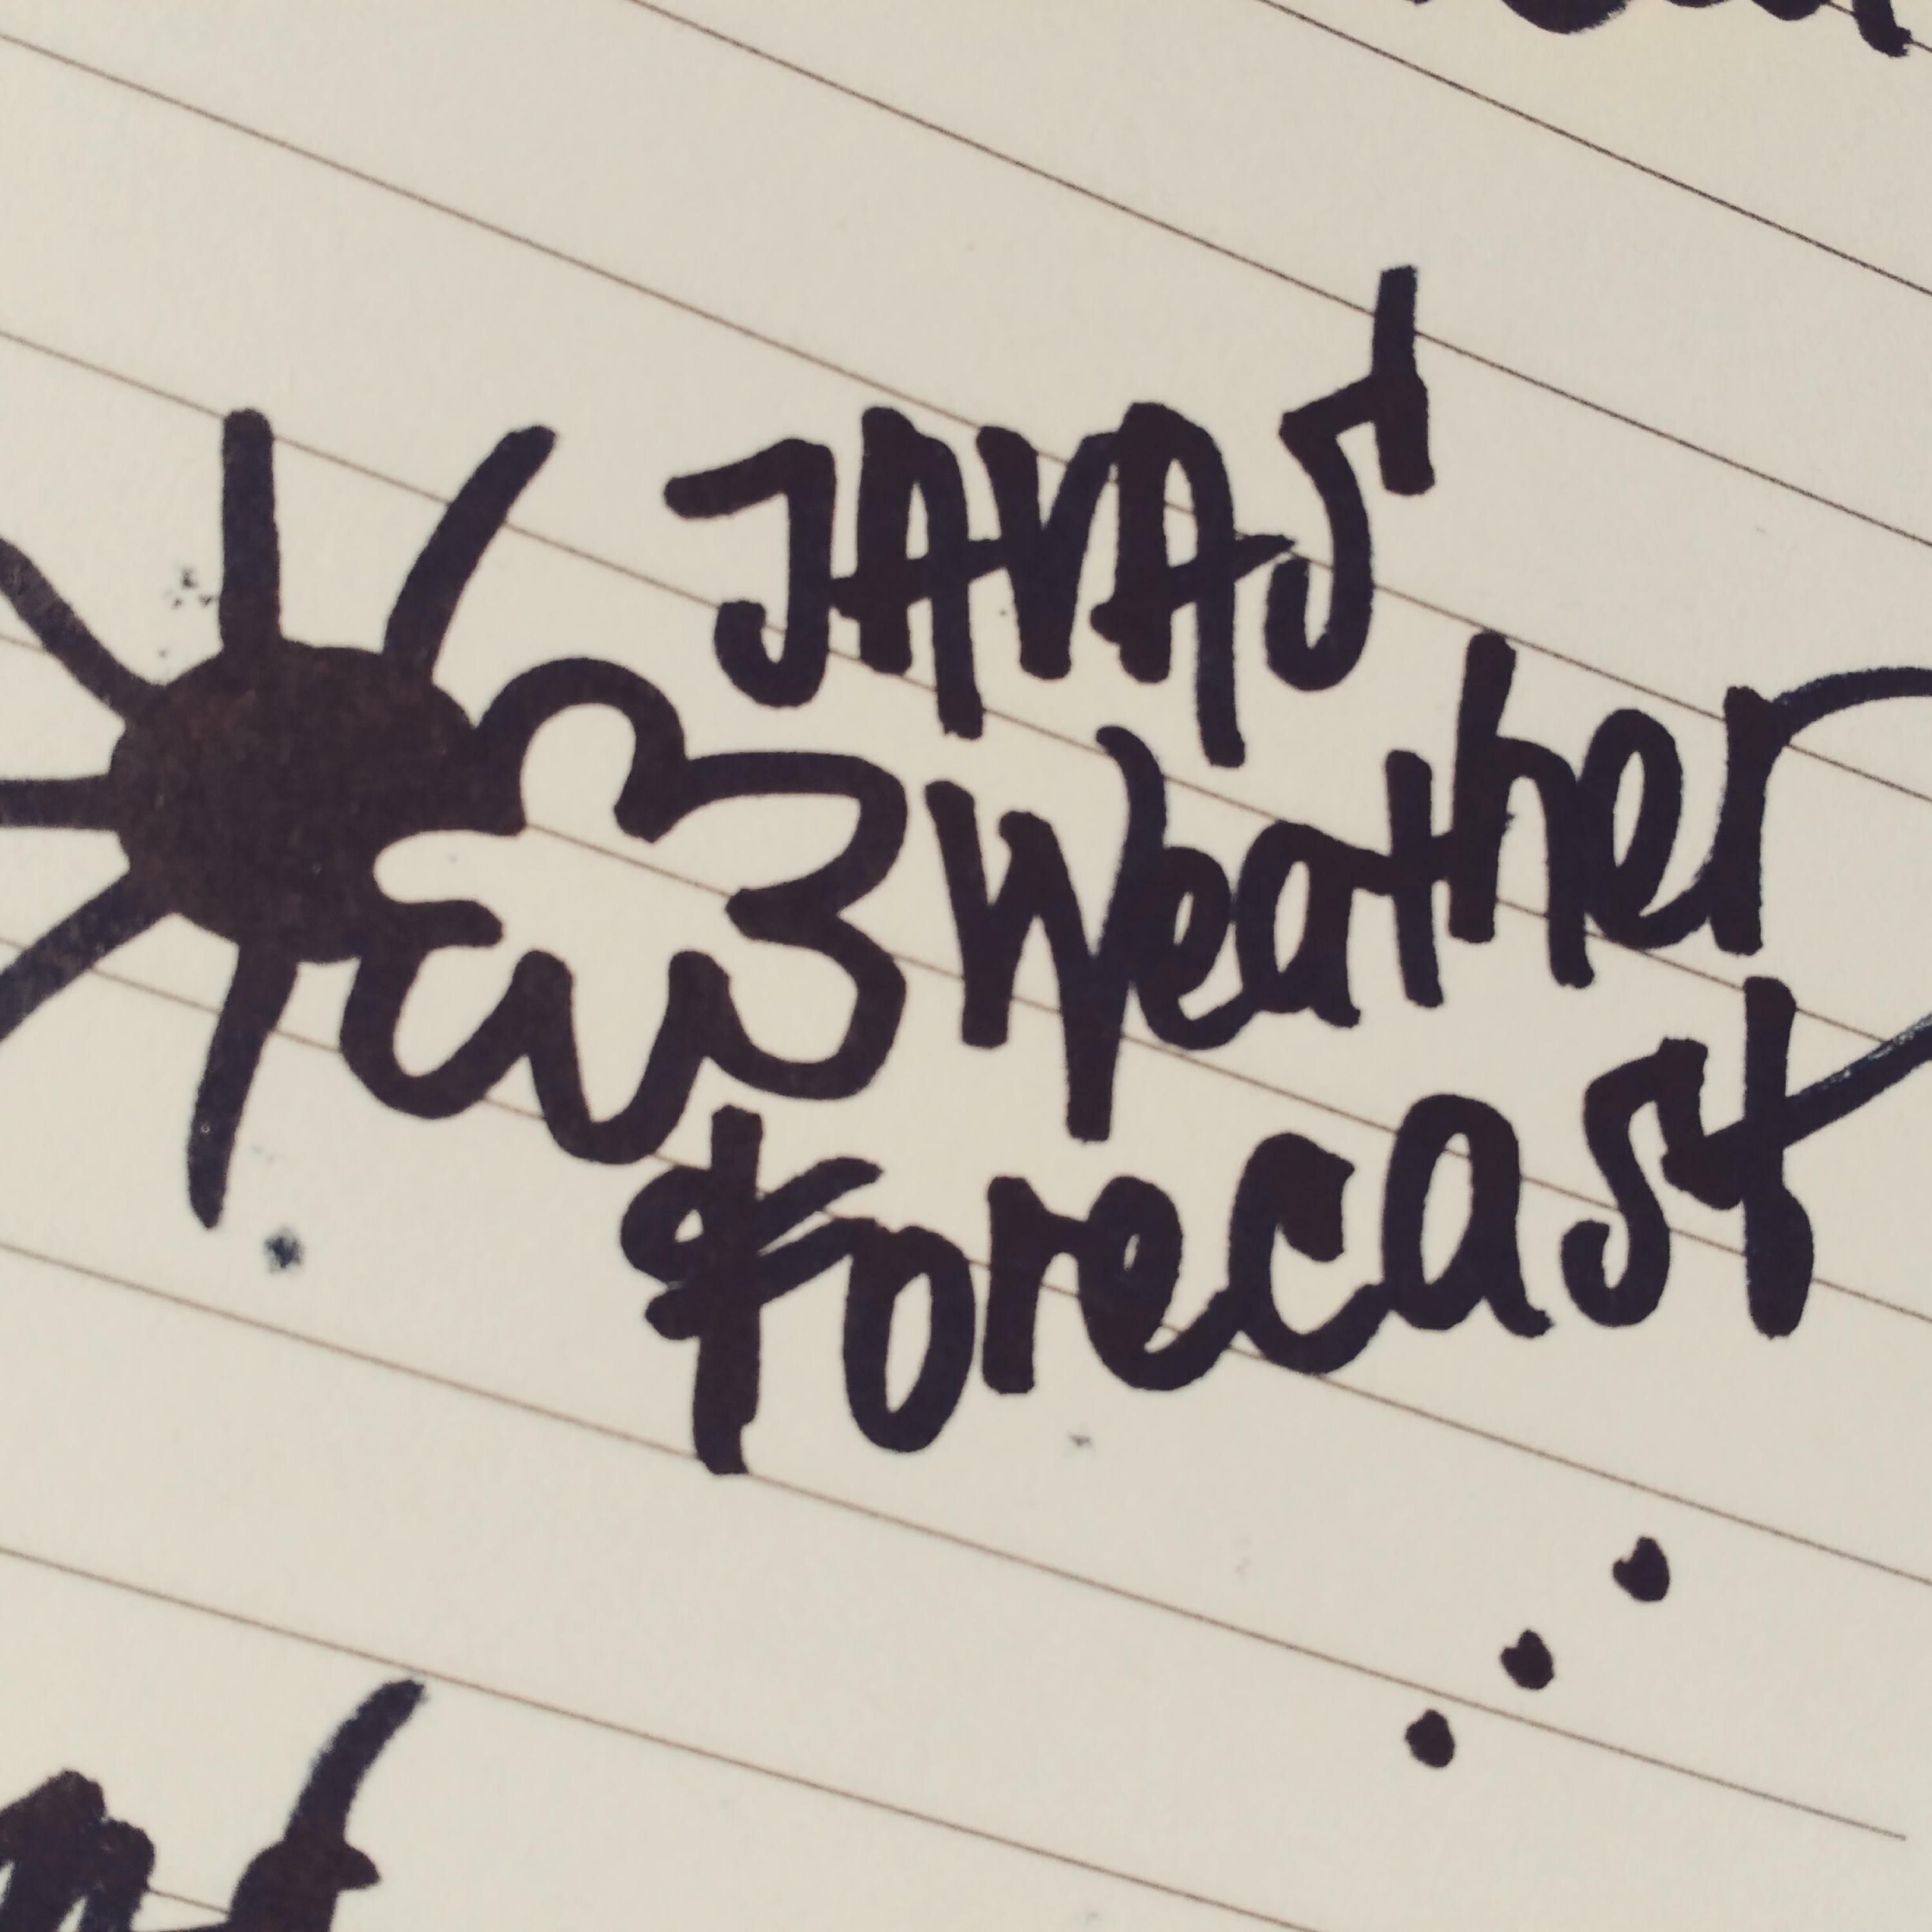 JAVAS
Weather
Forecast